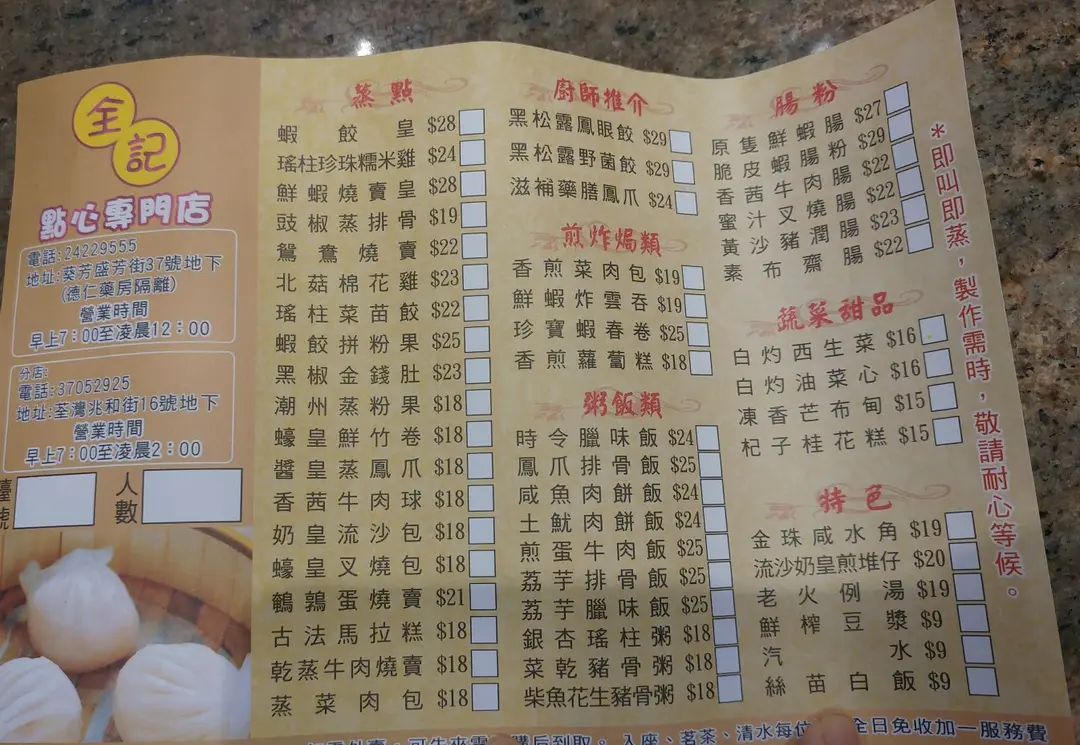 全記
點心專門店
電話:24229555
地址:葵芳盛芳街37號地下
(德仁藥房隔離)
營業時間
早上7:00至凌晨12:00
分店:
電話:37052925
地址:荃灣兆和街16號地下
營業時間
早上7:00至凌晨2:00
人數
蒸點
蝦餃皇 $28
瑤柱珍珠糯米雞 $24
鮮蝦燒賣皇 $28
豉椒蒸排骨 $19
鴛鴦燒賣 $22
北菇棉花雞 $23
瑤柱菜苗餃 $22
蝦餃拼粉果 $25
黑椒金錢肚 $23
潮州蒸粉果 $18
蠔皇鮮竹卷 $18
醬皇蒸鳳爪 $18
香茜牛肉球 $18
奶皇流沙包 $18
蠔皇叉燒包 $18
鵪鶉蛋燒賣 $21
古法馬拉糕 $18
乾蒸牛肉燒賣 $18
蒸菜肉包 $18
廚師推介
黑松露鳳眼餃 $29
黑松露野菌餃 $29
滋補藥膳鳳爪 $24
煎炸焗類
香煎菜肉包 $19
鮮蝦炸雲吞 $19
珍寶蝦春卷 $25
香煎蘿蔔糕 $18
粥飯類
時令臘味飯 $24
鳳爪排骨飯 $25
咸魚肉餅飯 $24
土魷肉餅飯 $24
煎蛋牛肉飯 $25
荔芋排骨飯 $25
荔芋臘味飯 $25
銀杏瑤柱粥 $18
菜乾豬骨粥 $18
柴魚花生豬骨粥 $18
腸粉
原隻鮮蝦腸 $27
脆皮蝦腸粉 $29
香茜牛肉腸 $22
蜜汁叉燒腸 $22
黃沙豬潤腸 $23
素布齋腸 $22
蔬菜甜品
白灼西生菜 $16
白灼油菜心 $16
凍香芒布甸 $15
杞子桂花糕 $15
特色
金珠咸水角 $19
流沙奶皇煎堆仔 $20
老火例湯 $19
鮮榨豆漿 $9
汽水 $9
絲苗白飯 $9
*即叫即蒸,製作需時,敬請耐心等候。
入座、茗茶、清水每位 全日免收加一服務費